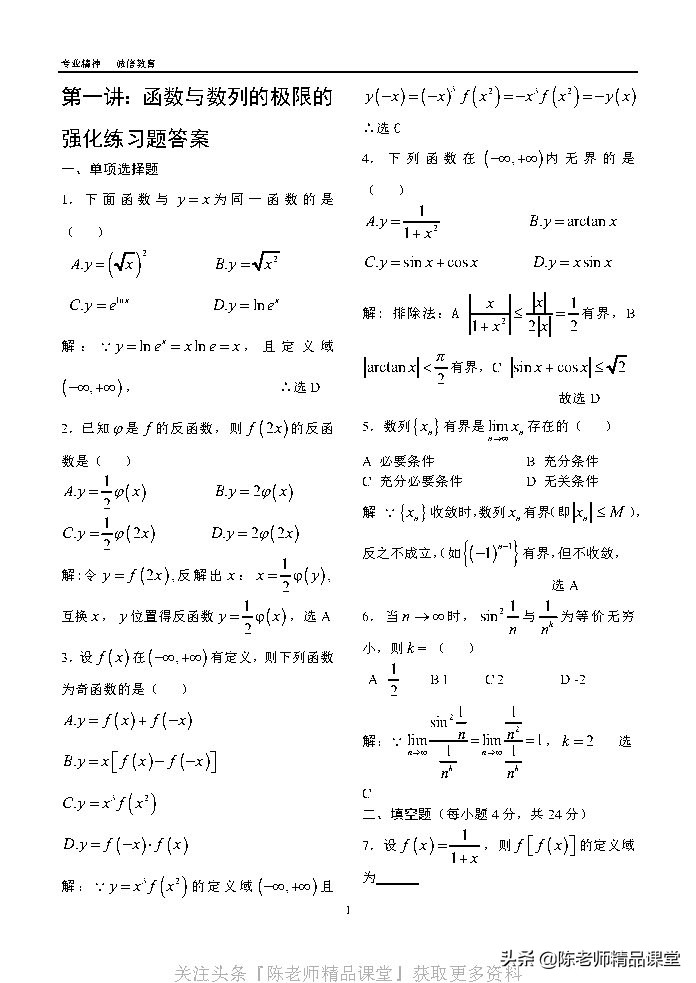 专业精神  诚信教育
第一讲：函数与数列的极限的
强化练习题答案
一、单项选择题
1．下面函数与 y = x 为同一函数的是
（  ）
A.y = (√x)²  B.y = √x²
C.y = e^{ln x}  D.y = ln e^x
解：∵ y = ln e^x = x ln e = x，且定义域
(−∞, +∞)，  ∴选 D
2．已知 φ 是 f 的反函数，则 f(2x) 的反函
数是（  ）
A.y = 1/2 φ(x)  B.y = 2φ(x)
C.y = 1/2 φ(2x)  D.y = 2φ(2x)
解:令 y = f(2x), 反解出 x：x = 1/2 φ(y),
互换 x，y 位置得反函数 y = 1/2 φ(x)，选 A
3．设 f(x) 在 (−∞, +∞) 有定义，则下列函数
为奇函数的是（  ）
A.y = f(x) + f(−x)
B.y = x[f(x) − f(−x)]
C.y = x³ f(x²)
D.y = f(−x)·f(x)
解：∵ y = x³ f(x²) 的定义域 (−∞, +∞) 且
y(−x) = (−x)³ f(x²) = −x³ f(x²) = −y(x)
∴选 C
4．下列函数在 (−∞, +∞) 内无界的是
（  ）
A.y = 1/(1+x²)  B.y = arctan x
C.y = sin x + cos x  D.y = x sin x
解: 排除法：A |x/(1+x²)| ≤ |x|/(2|x|) = 1/2 有界，B
|arctan x| < π/2 有界，C |sin x + cos x| ≤ √2
故选 D
5．数列 {x_n} 有界是 lim_{n→∞} x_n 存在的（  ）
A 必要条件  B 充分条件
C 充分必要条件  D 无关条件
解 ∵ {x_n} 收敛时,数列 x_n 有界(即 |x_n| ≤ M )，
反之不成立,（如 {(−1)^{n−1}} 有界,但不收敛,
选 A
6．当 n → ∞ 时，sin² 1/n 与 1/n^k 为等价无穷
小，则 k =（  ）
A 1/2  B 1  C 2  D -2
解：∵ lim_{n→∞} (sin² 1/n)/(1/n^k) = lim_{n→∞} (1/n²)/(1/n^k) = 1，k = 2  选
C
二、填空题（每小题 4 分，共 24 分）
7．设 f(x) = 1/(1+x)，则 f[f(x)] 的定义域
为______
1
关注头条『陈老师精品课堂』获取更多资料
头条 @陈老师精品课堂